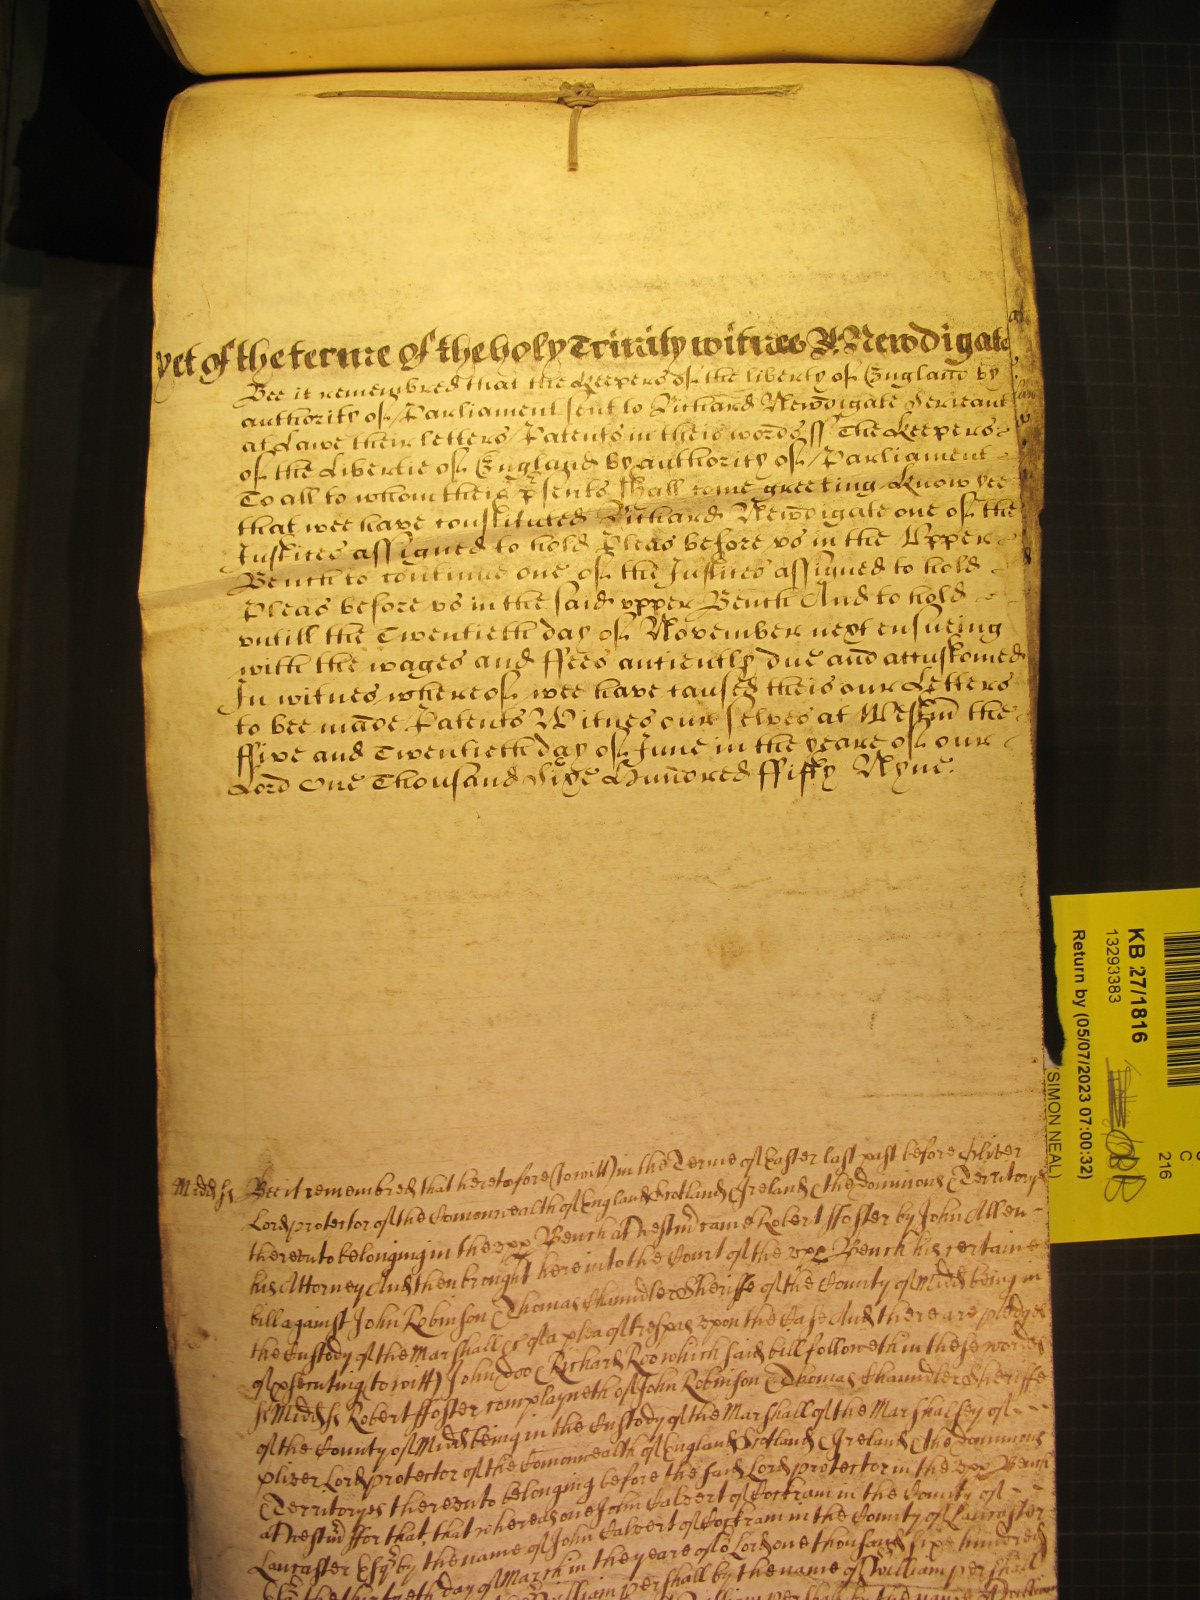 yet of the terme of the holy Trinity witnes R Newdigate
Bee it remembred that the Keepers of the liberty of England by
authority of Parliament sent to Richard Newdigate Serieant
at Lawe their letters Patents in theis words ss The Keepers
of the Libertie of England by authority of Parliament
To all to whom theis psents shall come greeting Know yee
that wee have constituted Richard Newdigate one of the
Justices assigned to hold Pleas before vs in the Vpper
Bench to continue one of the Justices assigned to hold
Pleas before vs in the said vpper Bench And to hold
vntill the Twentieth day of November next ensueing
with the wages and ffees antiently due and accustomed
In witnes whereof wee have caused theis our Letters
to bee made Patents Witnes our selves at Westm the
ffive and Twentieth day of June in the yeare of our
Lord One Thousand Sixe Hundred ffifty Nyne.
Midds ss Bee it remembred that heretofore (to witt) in the Terme of Easter last past before Oliver
Lord protector of the Comonwealth of England Scotland & Ireland & the dominions & Territoryes
therevnto belonging in the vpp Bench at Westm came Robert ffoster by John Allen
his Attorney And then brought here into the Court of the vpp Bench his certaine
bill against John Robinson & Thomas Chaundler Sheriffe of the County of Midd being in
the Custody of the Marshall &c of a plea of trespas vpon the Case And there are pledges
of psecuting to witt) John Doo & Richard Roo which said bill followeth in these words
ss Midds ss Robert ffoster complayneth of John Robinson & Thomas Chaundler Sheriffe
of the County of Midd being in the Custody of the Marshall of the Marshalsey of
Oliver Lord protector of the Comonwealth of England Scotland & Ireland & the dominions
& Territoryes therevnto belonging before the said Lord protector in the vpp Bench
at Westm ffor that, that whereas one John Calvert of Cockram in the County of
Lancaster Esqr by the name of John Calvert of Cockram in the County of Lancaster
Esqr the thirtieth day of March in the yeare of or Lord one thousand six hundred
William pershall by the name of William pershall
KB 27/1816
13293383
Return by (05/07/2023 07:00:32)
SIMON NEAL)
C
216